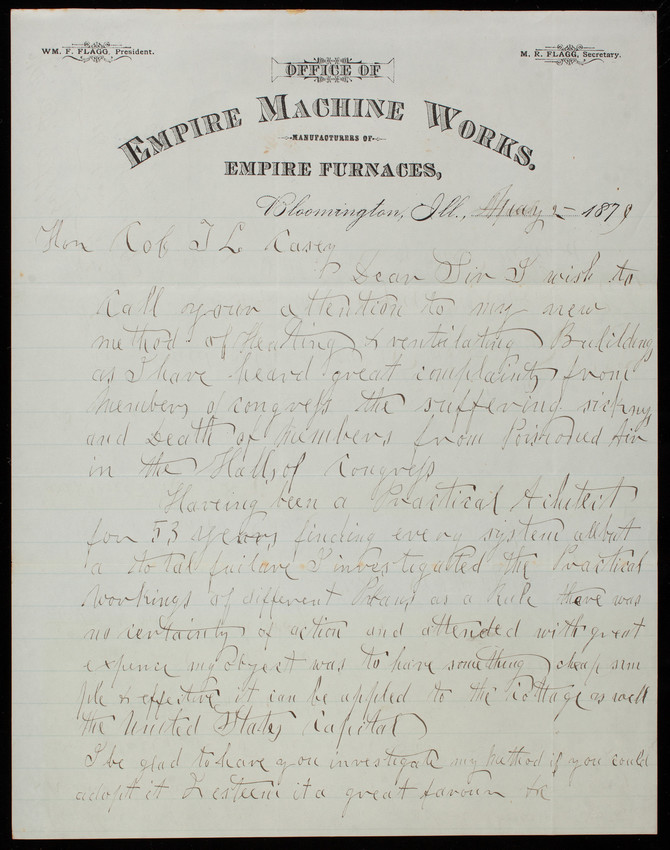 WM. F. FLAGG, President.
M. R. FLAGG, Secretary.
OFFICE OF
EMPIRE MACHINE WORKS.
MANUFACTURERS OF
EMPIRE FURNACES,
Bloomington, Ill., May 2 1879
Hon Col T L Casey
Dear Sir I wish to
Call your attention to my new
method of Heating & ventilating Buildings
as I have heard great complaints from
members of congress the suffering sickness
and Death of Members from Poisoned Air
in the Halls of Congress
Haveing been a Practical Achitect
for 53 years finding every system all but
a total failure I investigated the Practical
Workings of different Plans as a Rule there was
no certainty of action and attended with great
expence my object was to have something cheap sim
ple & effective it can be appled to the Cottage as well
the United States Capital
I be glad to have you investigate my Method if you could
adopt it I esteem it a great favour &c